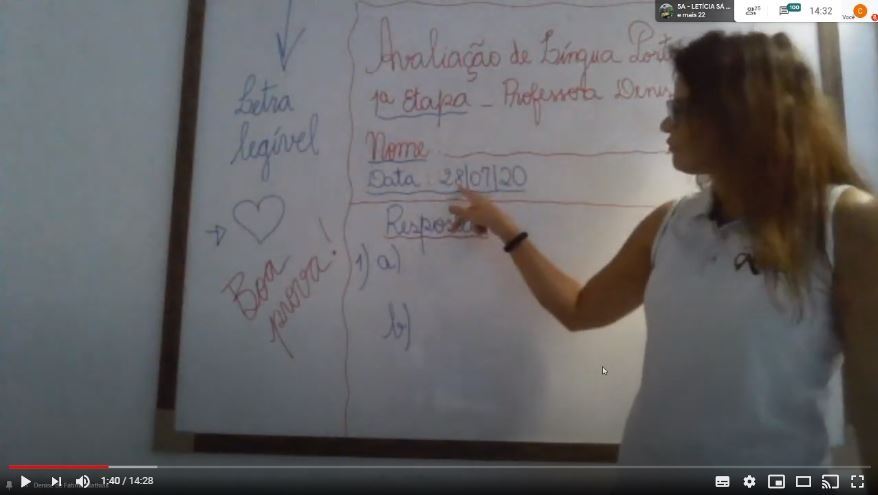 5A - LETÍCIA SÁ ...
e mais 22
25
100
14:32
Você
Letra
legível
Boa
prova!
Avaliação de Língua
1ª Etapa - Professora
Nome:
Data: 28/07/20
Respostas
1) a)
b)
1:40 / 14:28